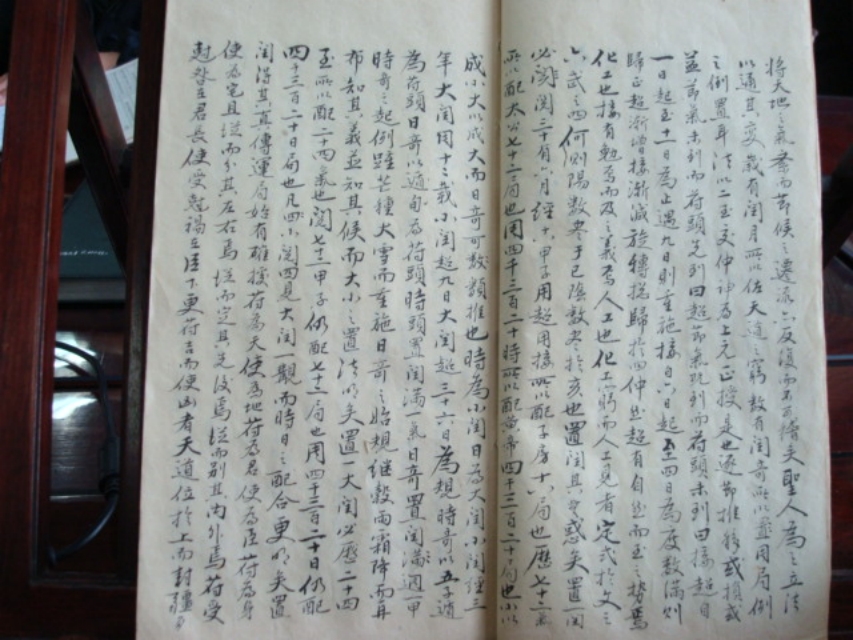 將天地之氣章而節候之遷流六反復而不可繪夫聖人為之立法
以通其變歲有閏月所以佐天道之窮數有閏奇所以盡用局例
之倒置耳法以二至交仲神為上元正授是也逐節推移或損或
益節氣未到而符頭先到曰超節氣既到而符頭未到曰接超自
一日起至十一日為止遇九日則重施接自六日起至十四日為度數滿則
歸正超漸增接漸減旋轉總歸於四仲然超有自然而至之勢焉
化工也接有勉焉而及之義焉人工也化工窮而人工見者定式於文之
六武之四何則陽數冬于已陰數冬於亥也置閏其可惑矣置一閏
必閱閏三十有六月經十六甲子用超用接所以配子房十八局也歷七十二氣
所以配太公七十二局也用四千三百二十時所以配黃帝四千三百二十局也小以
成小大以成大而日奇可数類推也時為小閏日為大閏小閏經三
年大閏用十二載小閏超九日大閏超三十六日為規時奇以五子遁
為符頭日奇以遁旬為符頭時頭置閏滿一氣日奇置閏滿週一甲
時奇之起例雖芒種大雪而重施日奇之始規繼穀雨霜降而再
布知其義並知其候而大小之置法明矣置一大閏必歷二十四
至所以配二十四氣也閱七十二甲子仍配七十二局也用四十三百二十日仍配
四十三百二十日局也凡四小閏四見大閏一覯而時日之配合更明矣置
閏得其真傳運局始有確據符為天使為地符為君使為臣符為身
使為宅且從而分其左右焉從而定其先後焉從而別其內外焉符受
尅咎在君長使受尅禍在臣下更符吉而使凶者天道位於上而封疆多